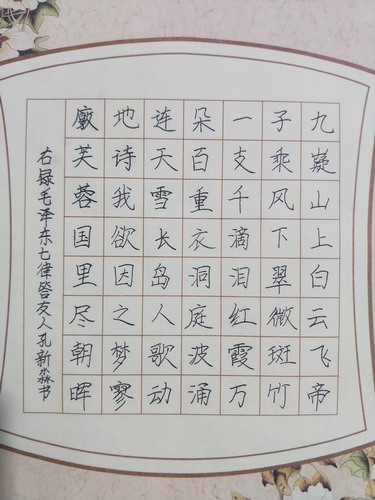 九嶷山上白云飞帝
子乘风下翠微斑竹
一支千滴泪红霞万
朵百重衣洞庭波涌
连天雪长岛人歌动
地诗我欲因之梦寥
廓芙蓉国里尽朝晖
右録毛泽东七律答友人孔新淼书